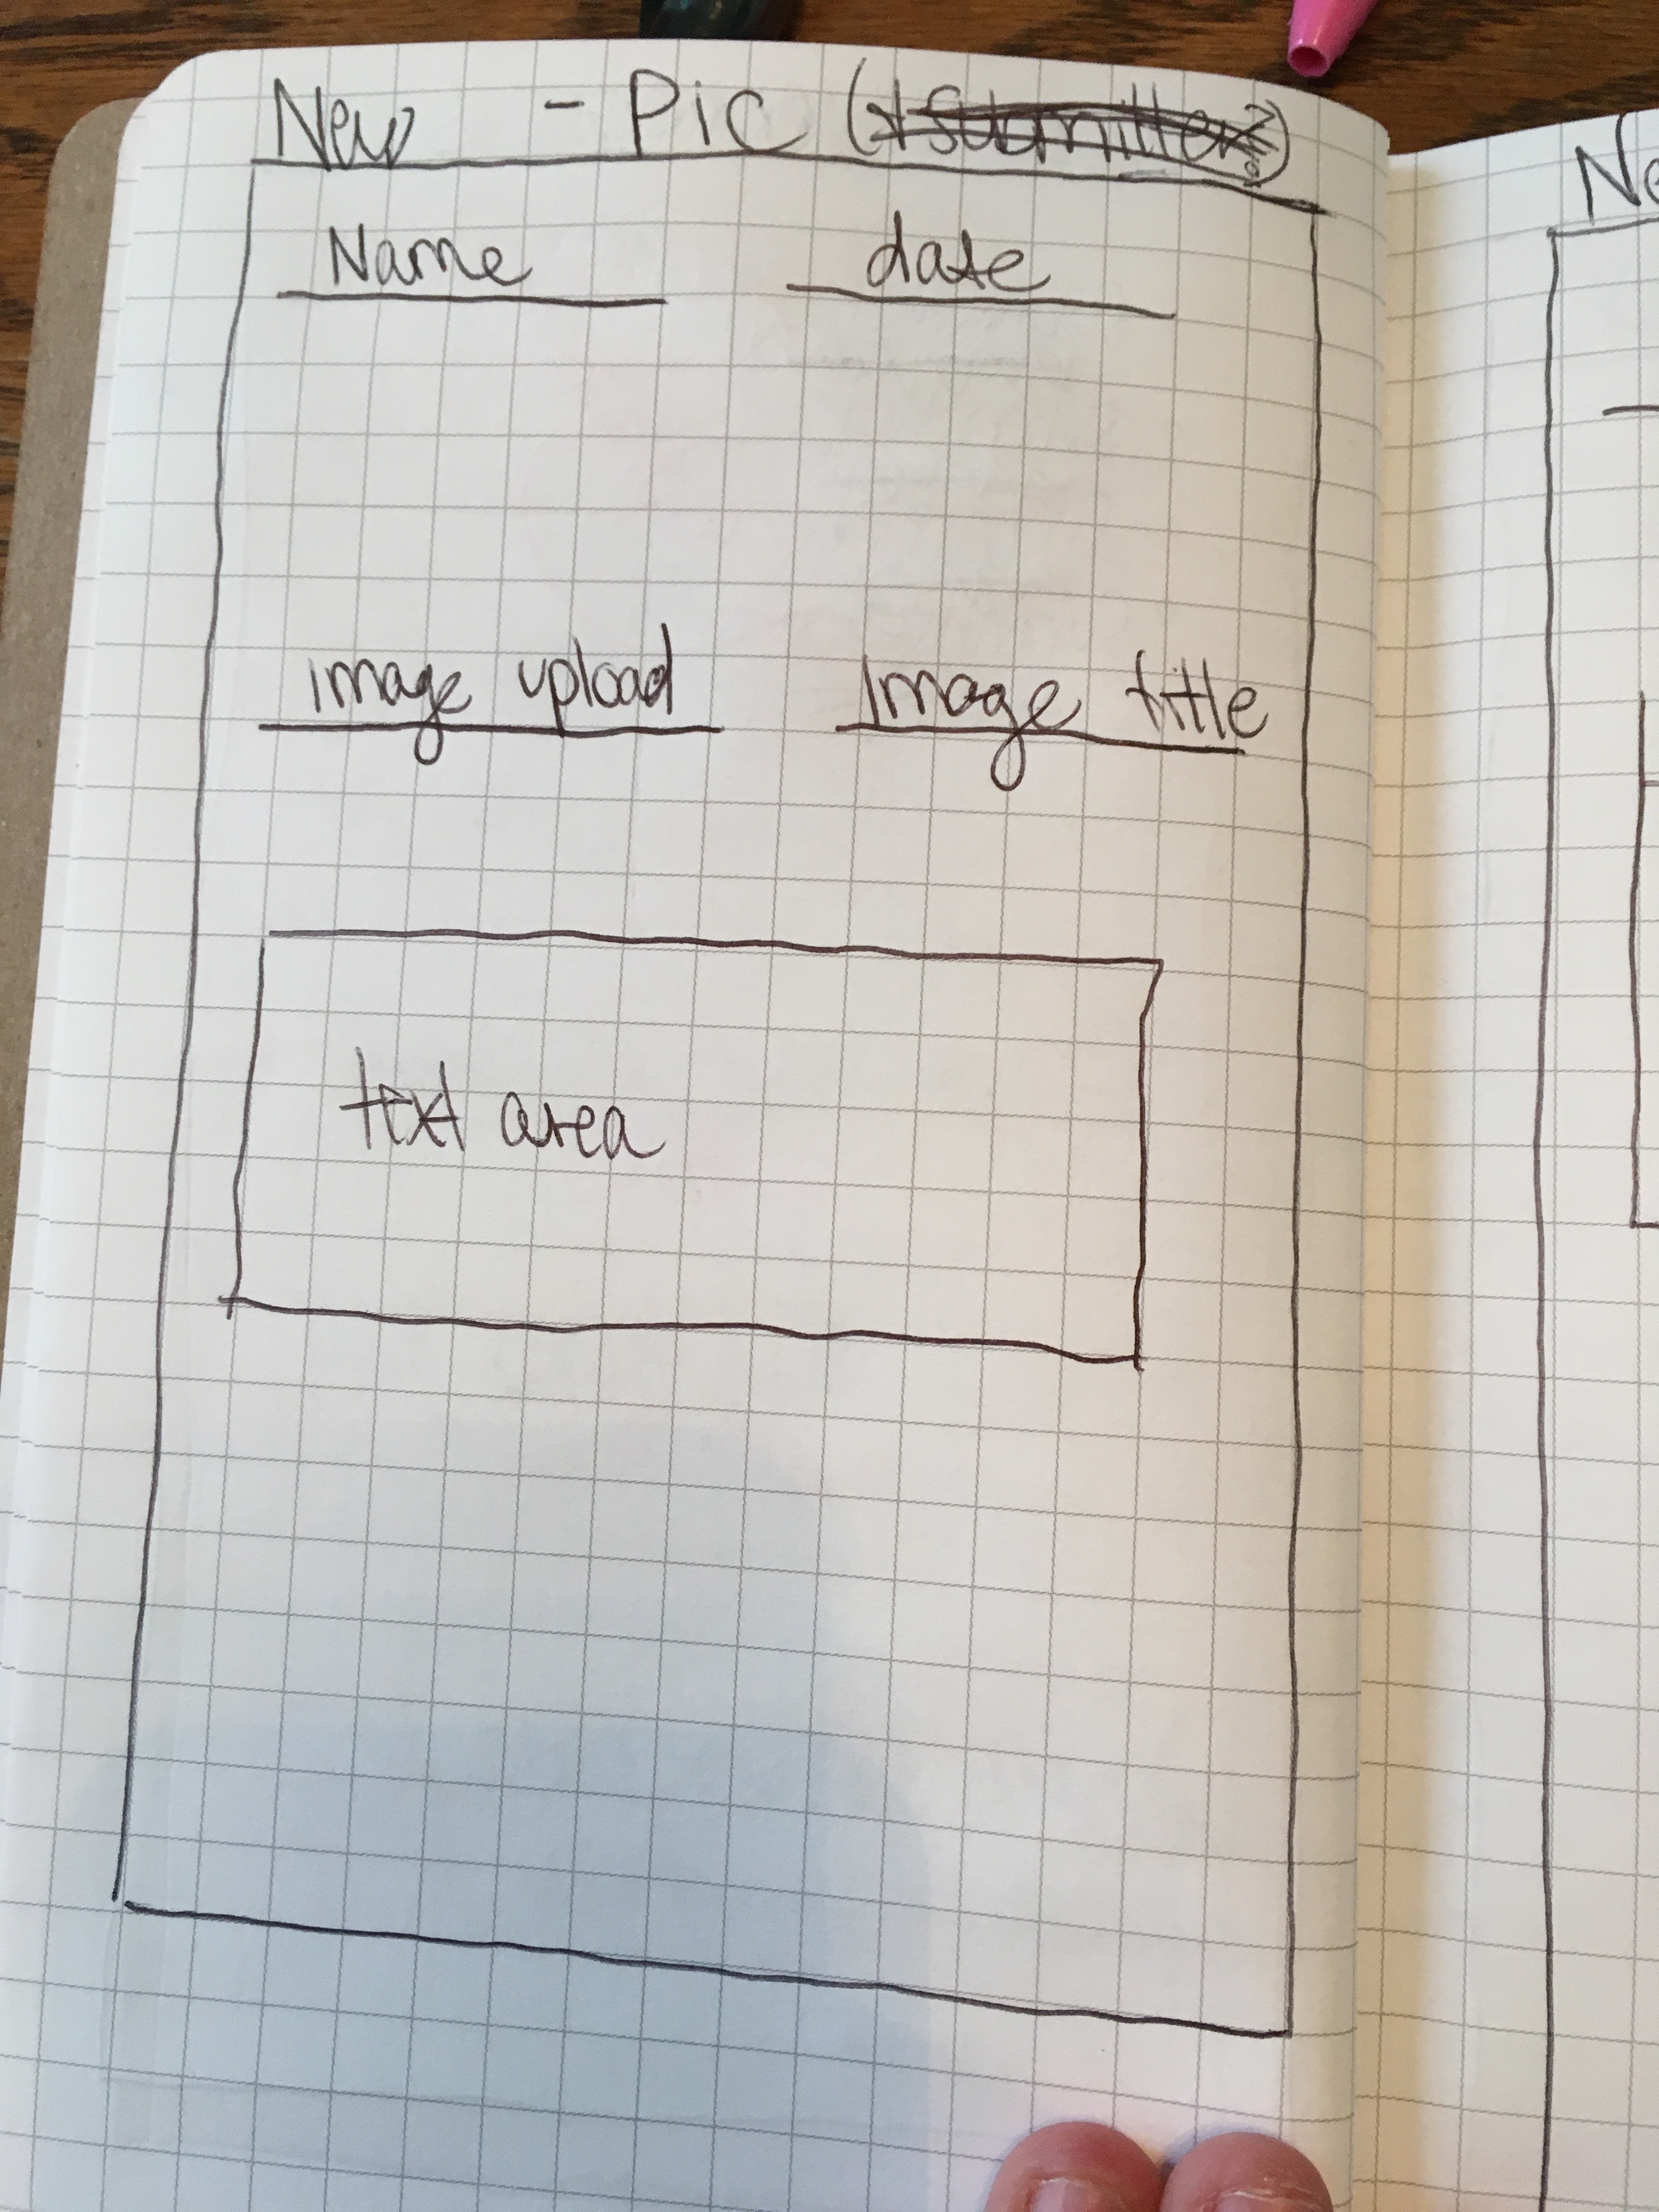 New - Pic (+
Name date
image upload Image title
text area
Ne